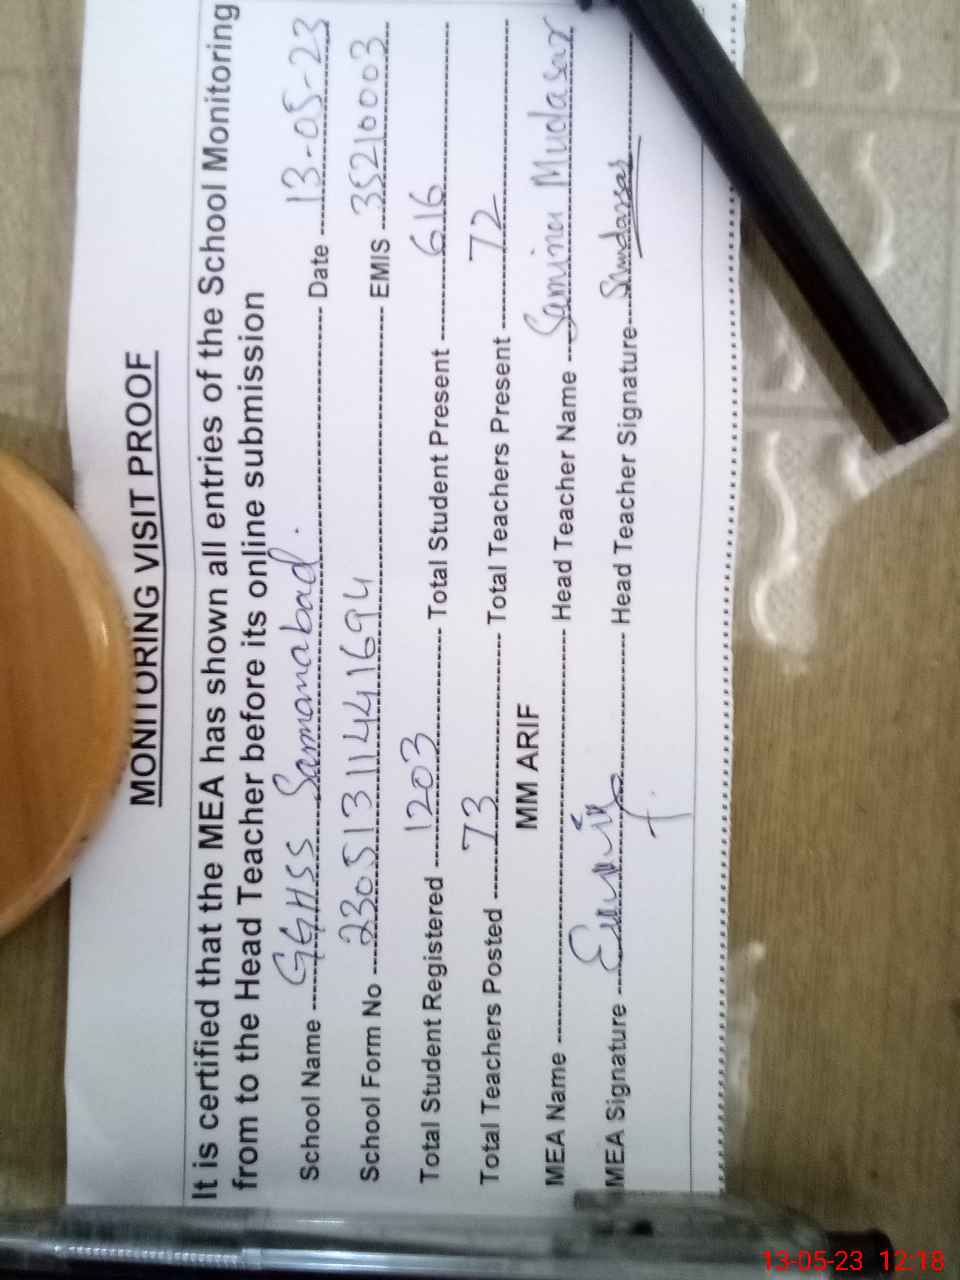 MONITORING VISIT PROOF
It is certified that the MEA has shown all entries of the School Monitoring
from to the Head Teacher before its online submission
School Name GGHSS Samanabad. Date 13-05-23
School Form No 23051311441694 EMIS 35210003
Total Student Registered 1203 Total Student Present 616
Total Teachers Posted 73 Total Teachers Present 72
MEA Name MM ARIF Head Teacher Name Samina Mudasar
MEA Signature Head Teacher Signature
13-05-23 12:18